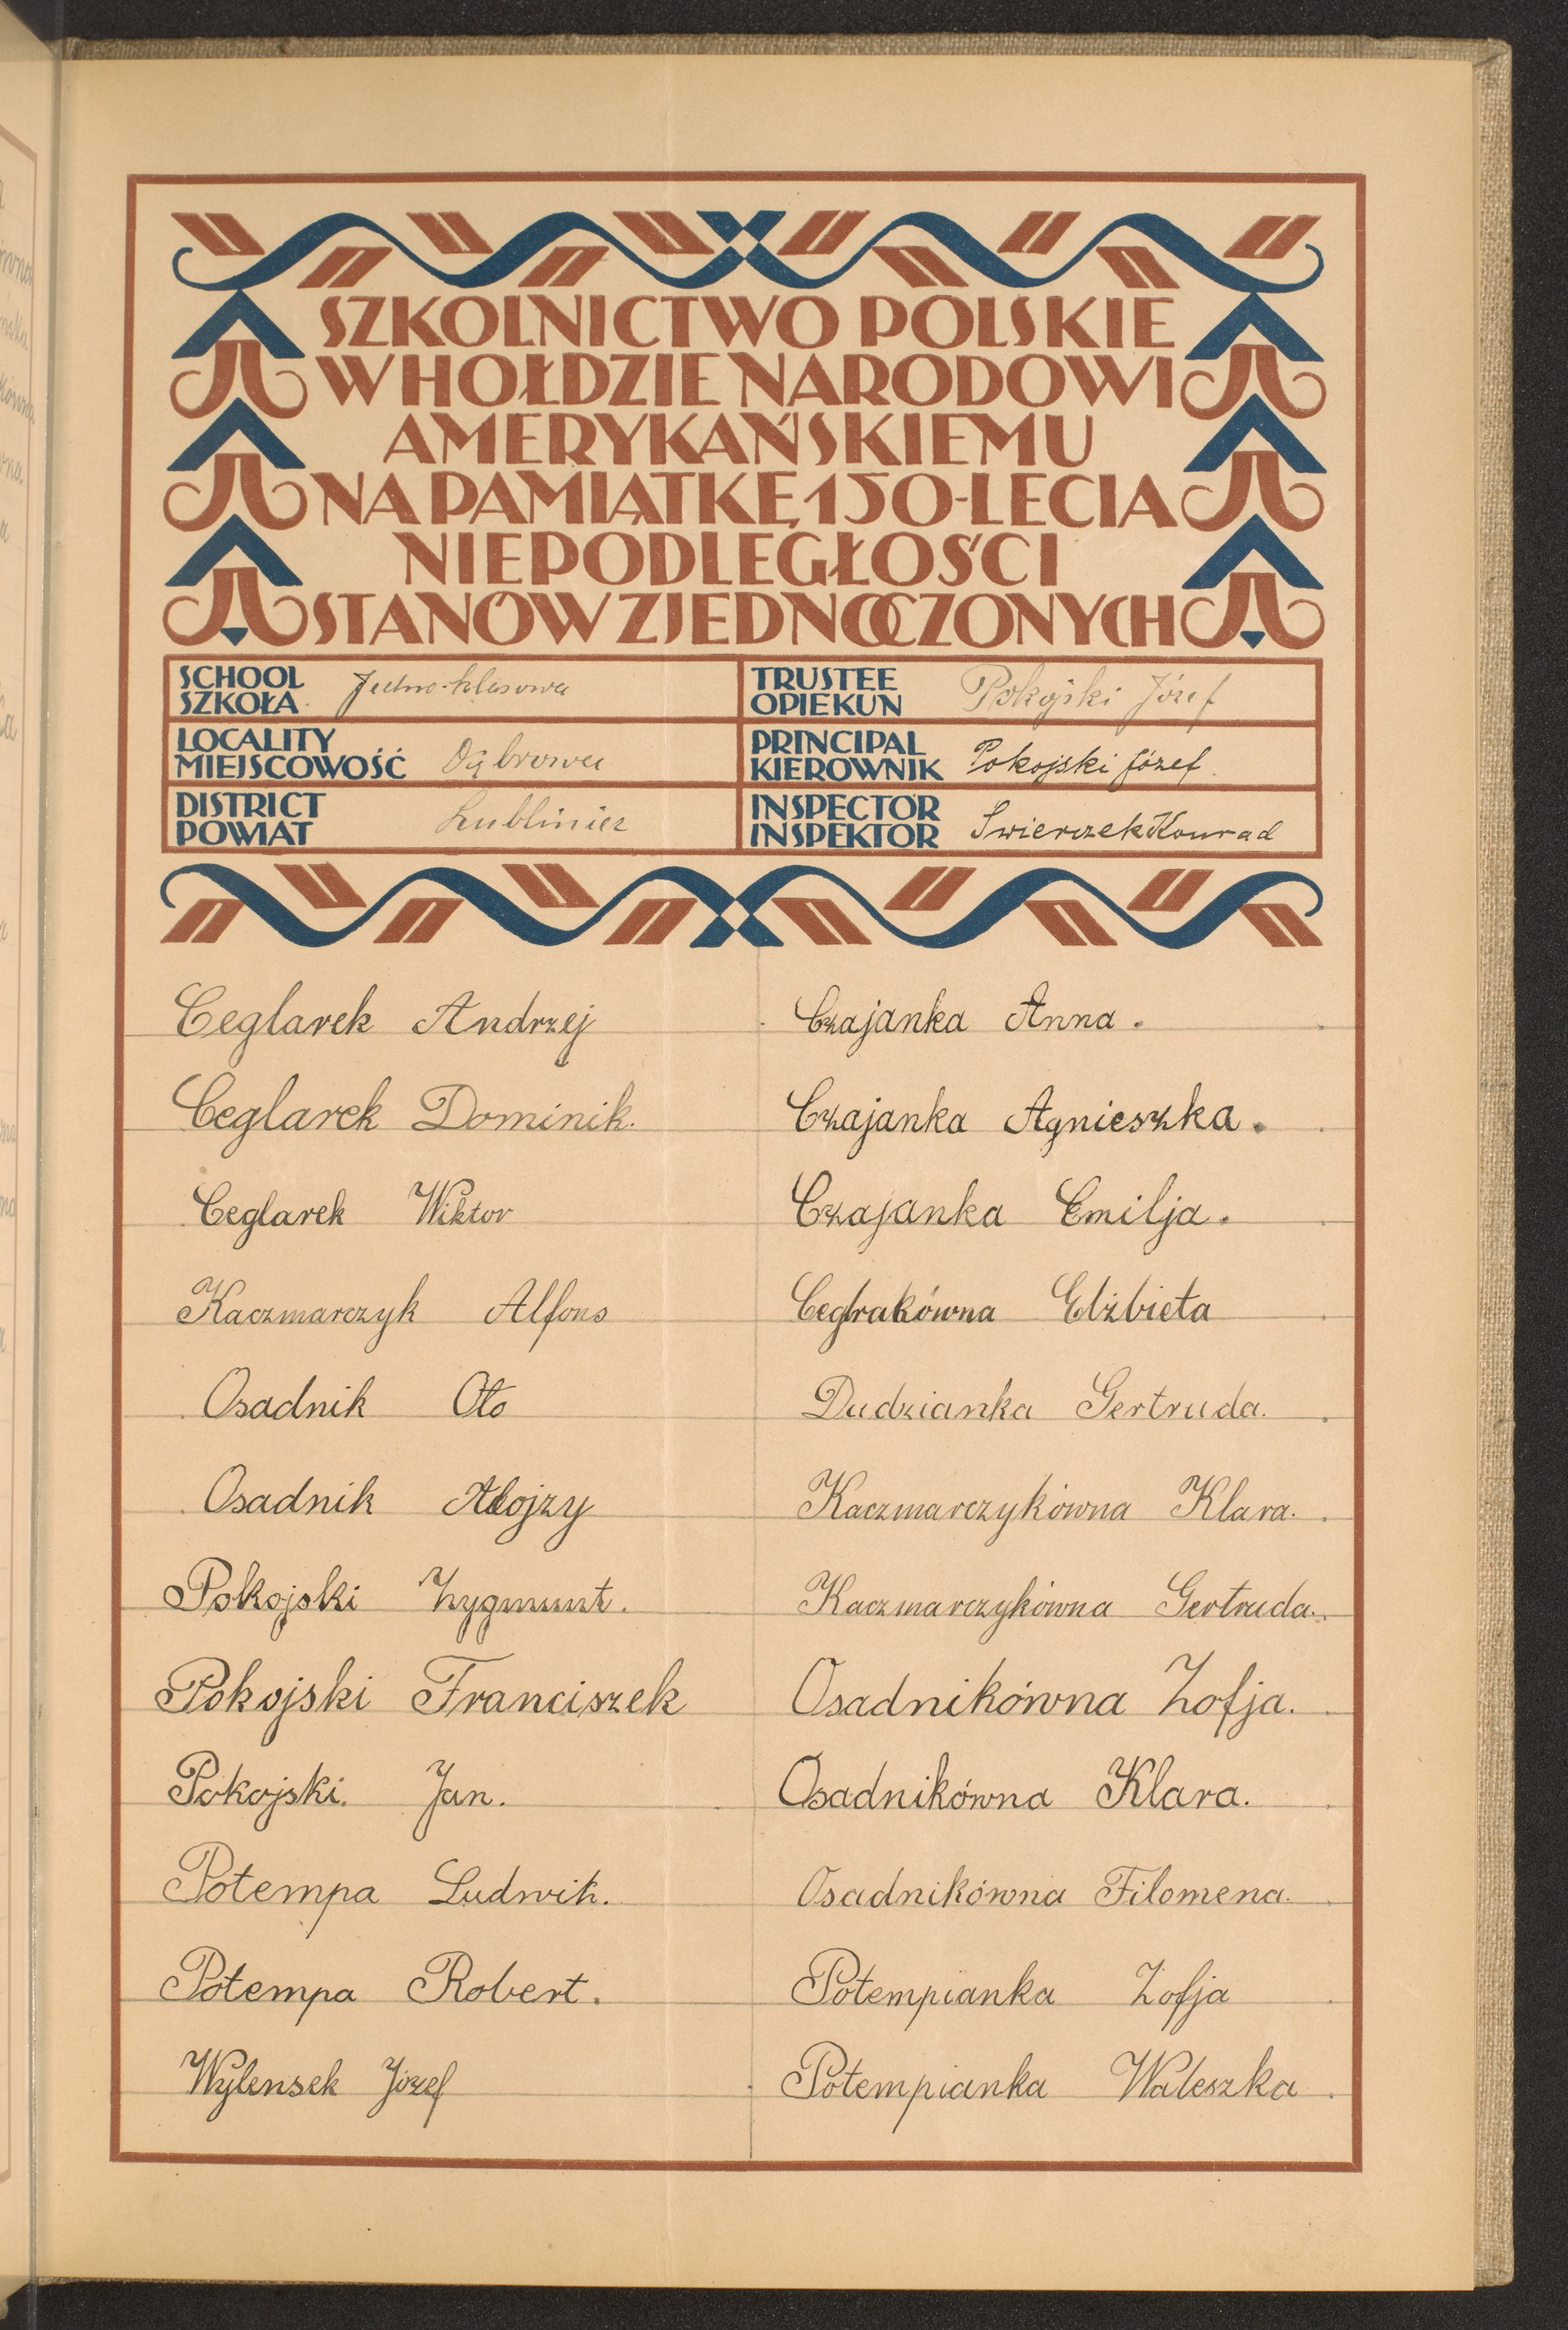 SZKOLNICTWO POLSKIE
W HOŁDZIE NARODOWI
AMERYKAŃSKIEMU
NA PAMIĄTKĘ 150-LECIA
NIEPODLEGŁOŚCI
STANÓW ZJEDNOCZONYCH
SCHOOL
SZKOŁA Jedno-klasowa
TRUSTEE
OPIEKUN Pokojski Józef
LOCALITY
MIEJSCOWOŚĆ Dąbrowa
PRINCIPAL
KIEROWNIK Pokojski Józef
DISTRICT
POWIAT Lubliniec
INSPECTOR
INSPEKTOR Swierczek Konrad
Ceglarek Andrzej
Ceglarek Dominik.
Ceglarek Wiktor
Kaczmarczyk Alfons
Osadnik Oto
Osadnik Alojzy
Pokojski Zygmunt.
Pokojski Franciszek
Pokojski. Jan.
Potempa Ludwik.
Potempa Robert.
Wylensek Józef
Czajanka Anna.
Czajanka Agnieszka.
Czajanka Emilja.
Ceglrakówna Elżbieta
Dudzianka Gertruda.
Kaczmarczykówna Klara.
Kaczmarczykówna Gertruda.
Osadnikówna Zofja.
Osadnikówna Klara.
Osadnikówna Filomena.
Potempianka Zofja
Potempianka Waleszka.